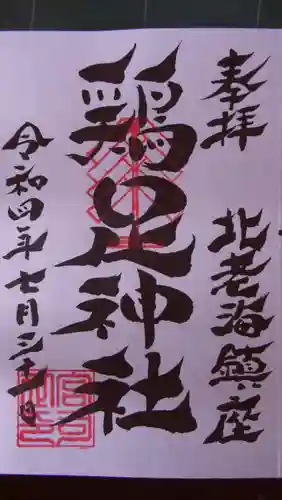 奉拝
北老海鎮座
鶏足神社
令和四年七月三十一日